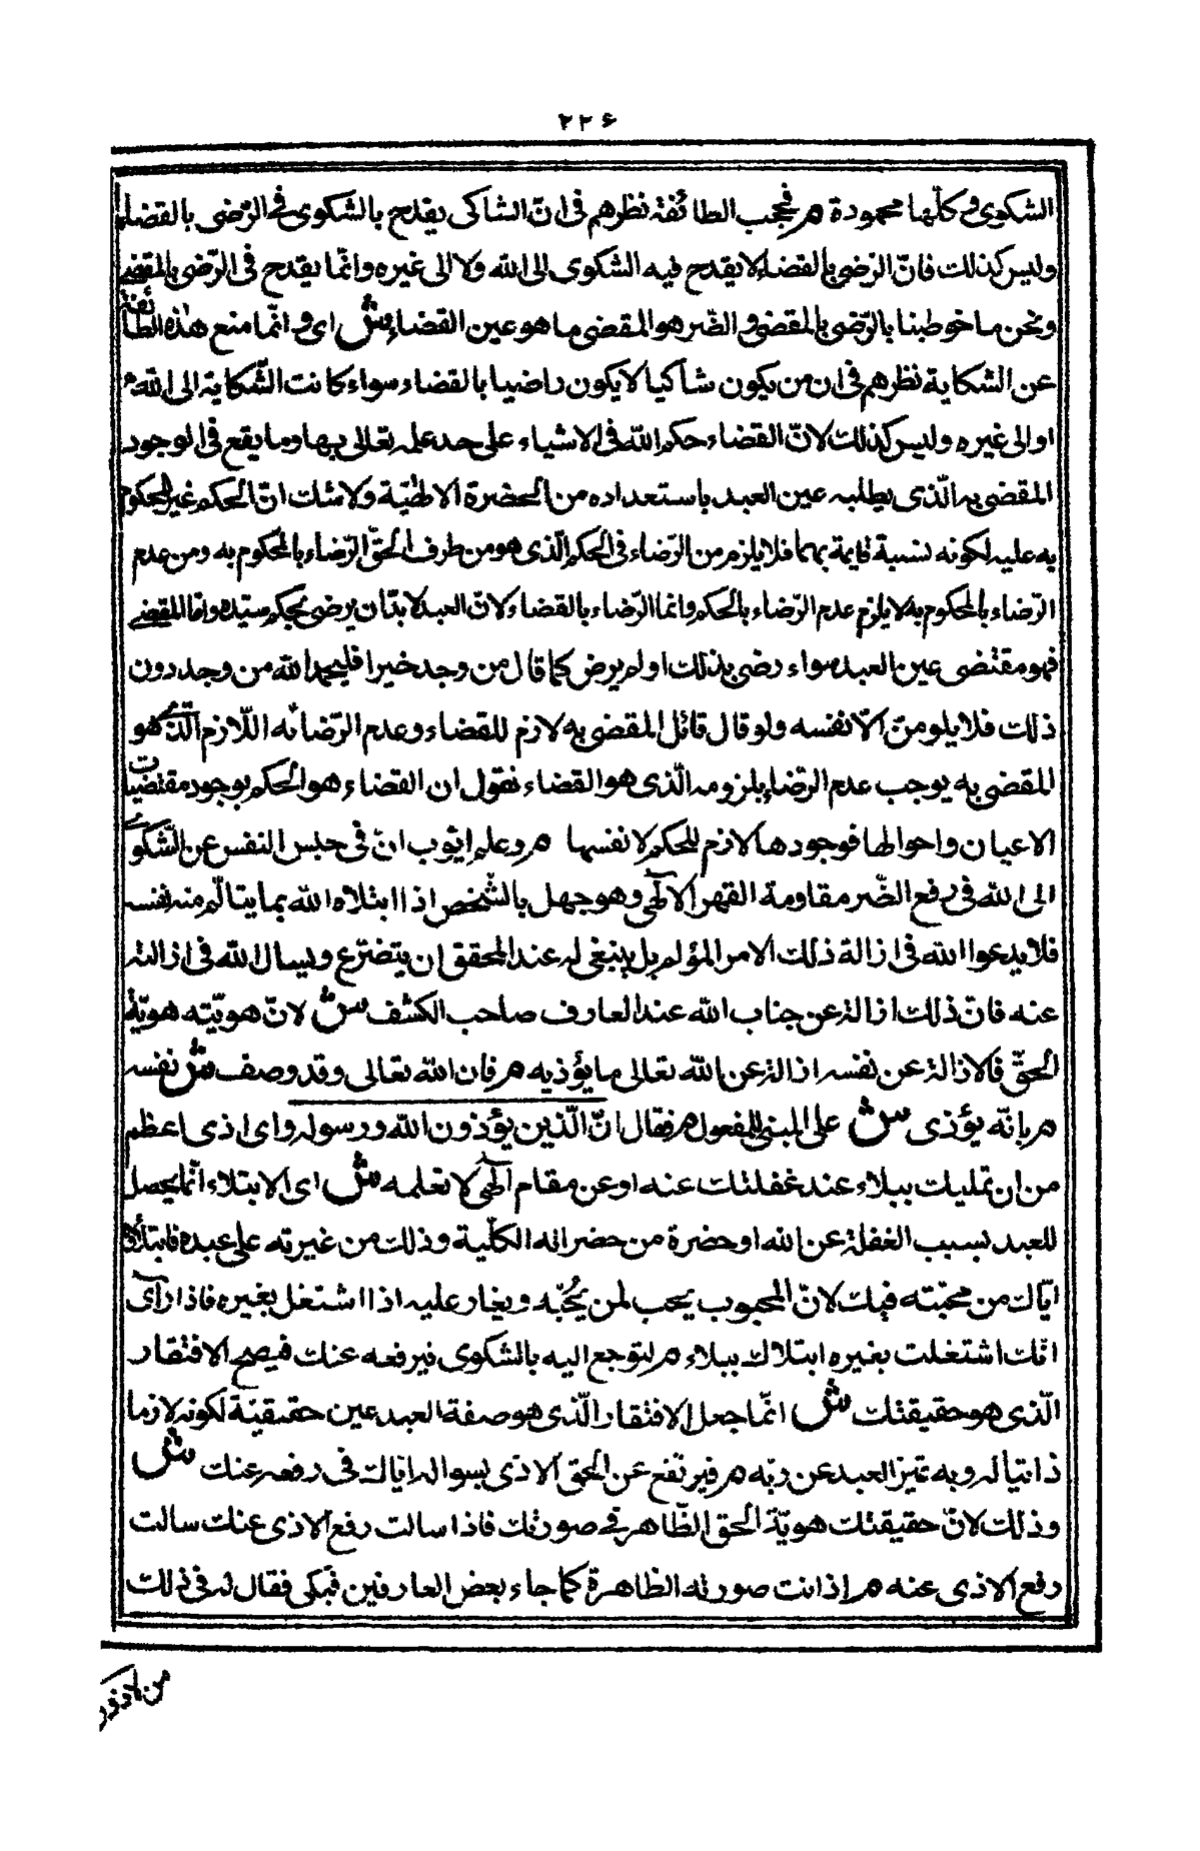 ٢٢۶
الشكوى وكلّها محمودة م فحجب الطائفة نظرهم فى انّ الشاكى يقدح بالشكوى فى الرّضى بالقضاء
وليس كذلك فانّ الرّضى بالقضاء لا يقدح فيه الشكوى الى الله ولا الى غيره وانّما يقدح فى الرّضى بالمقضى
ونحن ما خوطبنا بالرّضى بالمقضى والضّر هو المقضى ما هو عين القضاء ش اى و انّما منع هذه الطائفة
عن الشكاية نظرهم فى ان من يكون شاكيا لا يكون راضيا بالقضاء سواء كانت الشّكاية الى الله
او الى غيره وليس كذلك لانّ القضاء حكم الله فى الاشياء على حد علمه تعالى بها وما يقع فى الوجود
المقضى به الّذى يطلبه عين العبد باستعداده من الحضرة الالهيّة ولا شك انّ الحكم غير المحكوم
به عليه لكونه نسبة قايمة بهما فلا يلزم من الرّضاء فى الحكم الّذى هو من طرف الحقّ الرّضاء بالمحكوم به ومن عدم
الرّضاء بالمحكوم به لا يلزم عدم الرّضاء بالحكم وانما الرّضاء بالقضاء لانّ العبد لا بدّ ان يرضى بحكم سيّده وامّا المقضى
فهو مقتضى عين العبد سواء رضى بذلك او لم يرض كما قال من وجد خيرا فليحمد الله من وجد دون
ذلك فلا يلومنّ الّا نفسه ولو قال قائل المقضى به لازم للقضاء وعدم الرّضا به اللّازم الّذى هو
المقضى به يوجب عدم الرّضاء بلزومه الّذى هو القضاء نقول ان القضاء هو الحكم بوجود مقتضيات
الاعيان واحوالها فوجودها لازم للحكم لا نفسها م وعلم ايّوب انّ فى حبس النفس عن الشّكوى
الى الله فى رفع الضّر مقاومة القهر الالهى وهو جهل بالشّخص اذا ابتلاه الله بما يتألّم منه نفسه
فلا يدعوا الله فى ازالة ذلك الامر المؤلم بل ينبغى له عند المحقق ان يتضرّع ويسال الله فى ازالته
عنه فانّ ذلك ازالة عن جناب الله عند العارف صاحب الكشف ش لانّ هويّته هويّة
الحقّ فالازالة عن نفسه ازالة عن الله تعالى ما يؤذيه م فان الله تعالى وقد وصف ش نفسه
م بانّه يؤذى ش على المبنى للمفعول م فقال انّ الّذين يؤذون الله ورسوله واى اذى اعظم
من ان يبتليك ببلاء عند غفلتك عنه او عن مقام الهى لا تعلمه ش اى الابتلاء انّما يحصل
للعبد بسبب الغفلة عن الله او حضرة من حضراته الكلّية وذلك من غيرته على عبده فابتلاؤه
ايّاك من محبّته فيك لانّ المحبوب يحب لمن يُحبّه ويغار عليه اذا اشتغل بغيره فاذا رآى
انّك اشتغلت بغيره ابتلاك ببلاء م لتوجع اليه بالشكوى فيرفعه عنك فيصح الافتقار
الّذى هو حقيقتك ش انّما جعل الافتقار الّذى هو صفة العبد عين حقيقيّة لكونه لازما
ذاتيا له وبه تميّز العبد عن ربّه م فيرتفع عن الحق الاذى بسواله ايّاك فى رفعه عنك ش
وذلك لانّ حقيقتك هويّة الحق الظّاهر فى صورتك فاذا سالت رفع الاذى عنك سالت
رفع الاذى عنه م اذ انت صورته الظاهرة كما جاء بعض العارفين فبكى فقال له فى ذلك